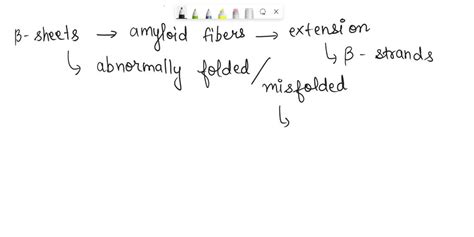 β-sheets → amyloid fibers → extension
↳ abnormally folded / ↳ β-strands
misfolded
↳